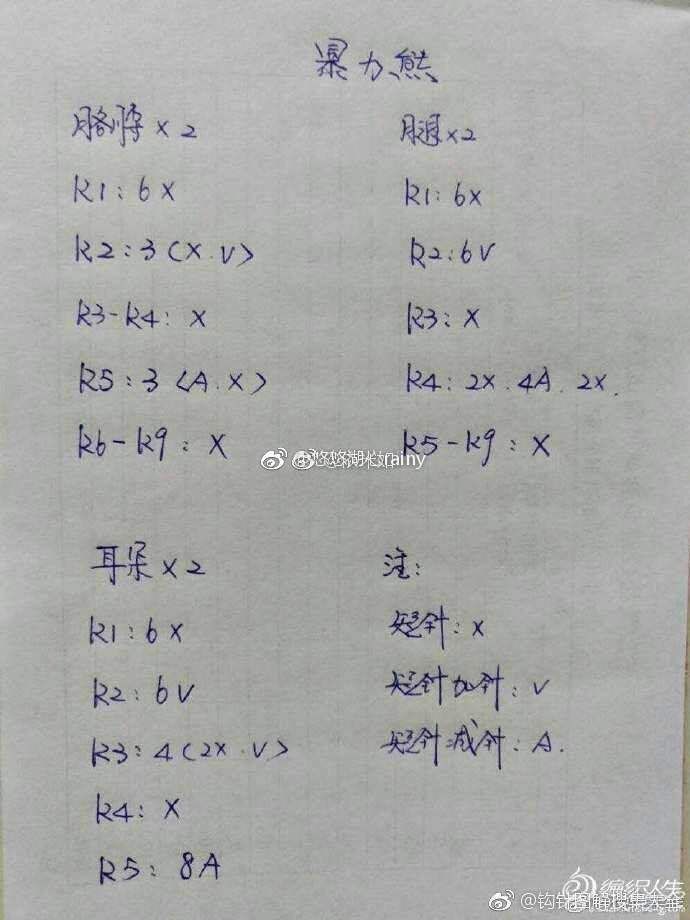 暴力熊
胳膊×2
R1:6X
R2:3(X.V)
R3-R4:X
R5:3(A.X)
R6-R9:X
腿×2
R1:6X
R2:6V
R3:X
R4:2X.4A.2X.
R5-R9:X
耳朵×2
R1:6X
R2:6V
R3:4(2X.V)
R4:X
R5:8A
注:
短针:X
短针加针:V
短针减针:A.
rainy
编织人生
@钩针图解搜集大全